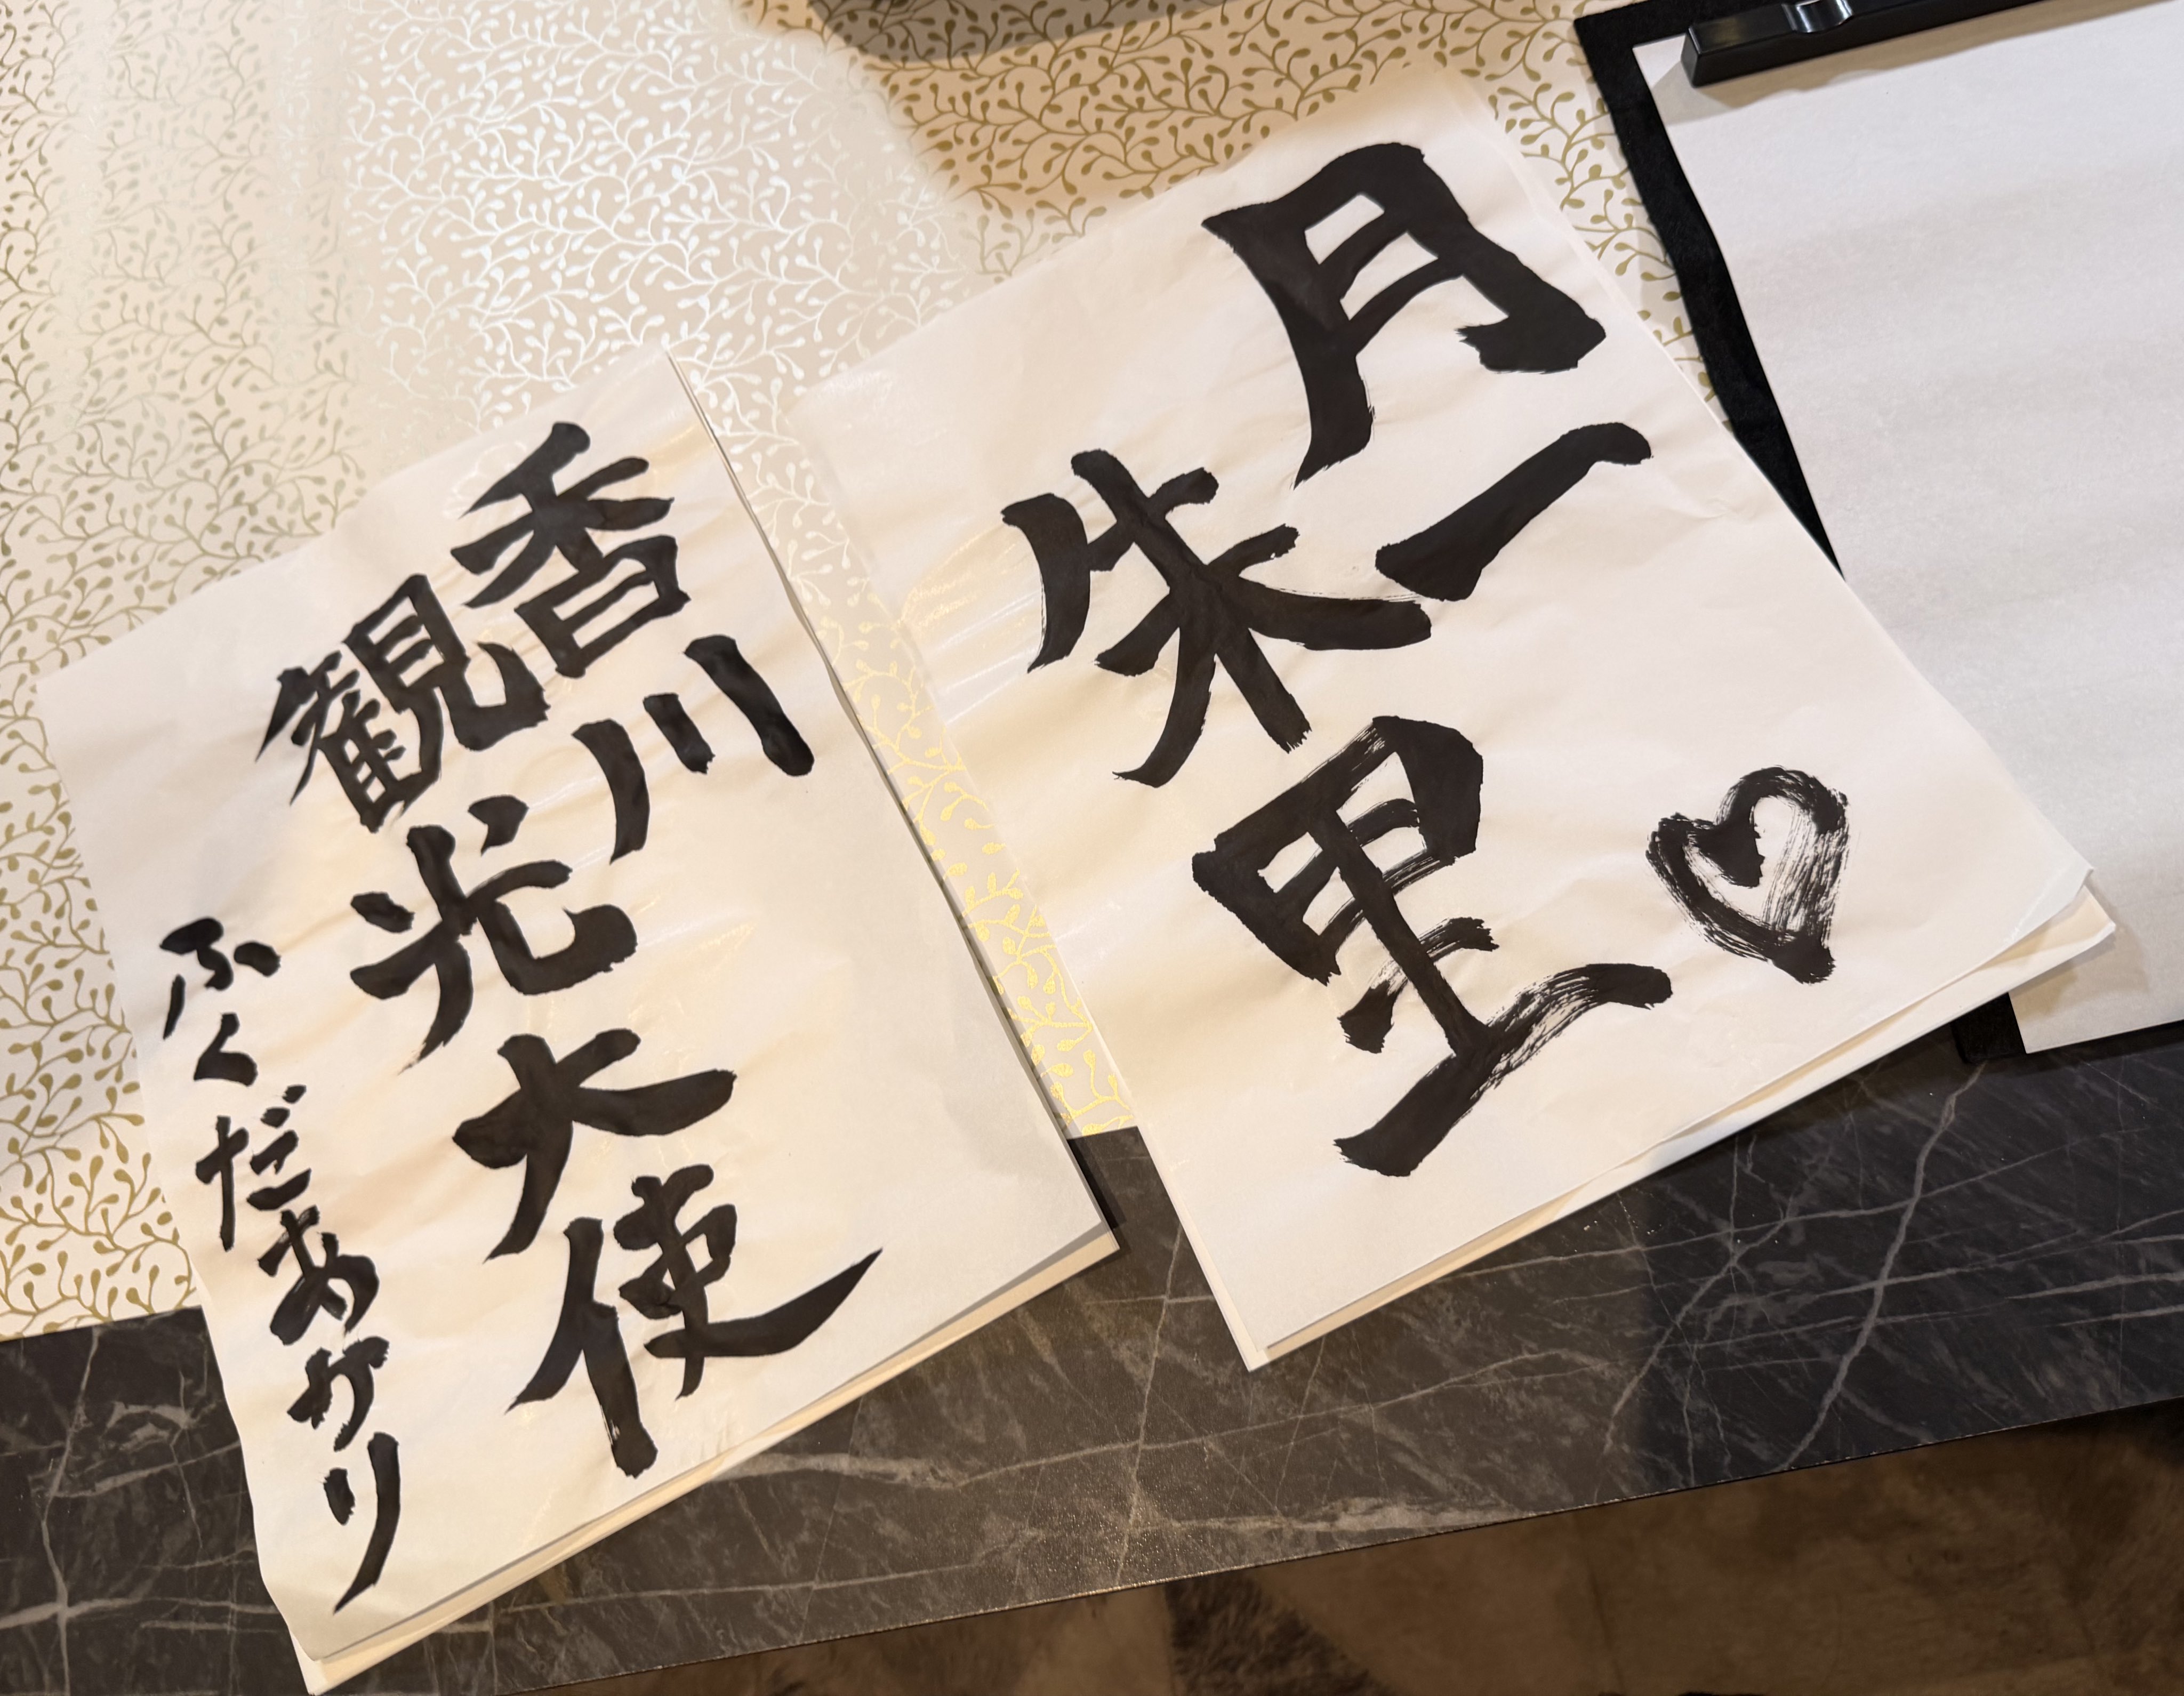 月一♡
朱里
香川
観光大使
ふくだあかり